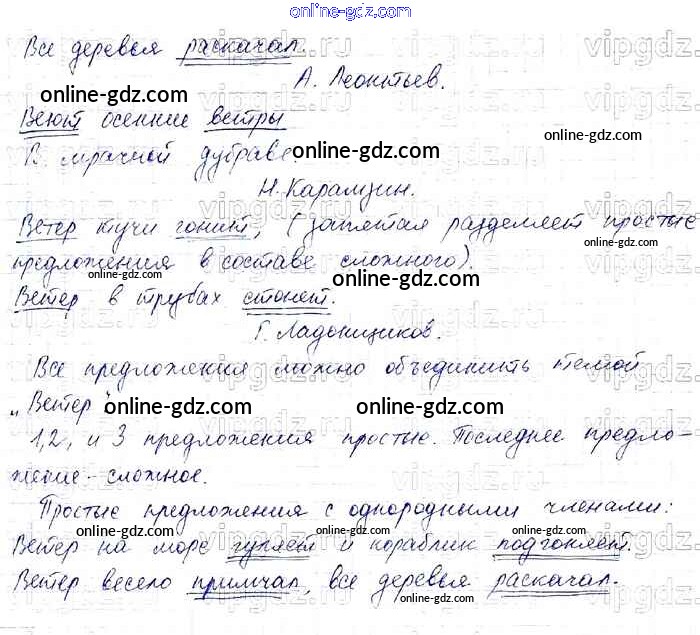 online-gdz.com
Все деревья раскачал.
А. Леонтьев.
online-gdz.com
Веют осенние ветры
online-gdz.com
В мрачной дубраве
online-gdz.com
Н. Карамзин.
Ветер тучи гонит, (запятая разделяет простые
online-gdz.com
предложения в составе сложного).
online-gdz.com
online-gdz.com
Ветер в трубах стонет.
Г. Ладонщиков.
Все предложения можно объединить темой
„Ветер"
online-gdz.com
online-gdz.com
1, 2, и 3 предложения простые. Последнее предло-
жение - сложное.
Простые предложения с однородными членами:
online-gdz.com
online-gdz.com
Ветер на море гуляет и кораблик подгоняет.
Ветер весело примчал, все деревья раскачал.
online-gdz.com
online-gdz.com
vipgdz.ru